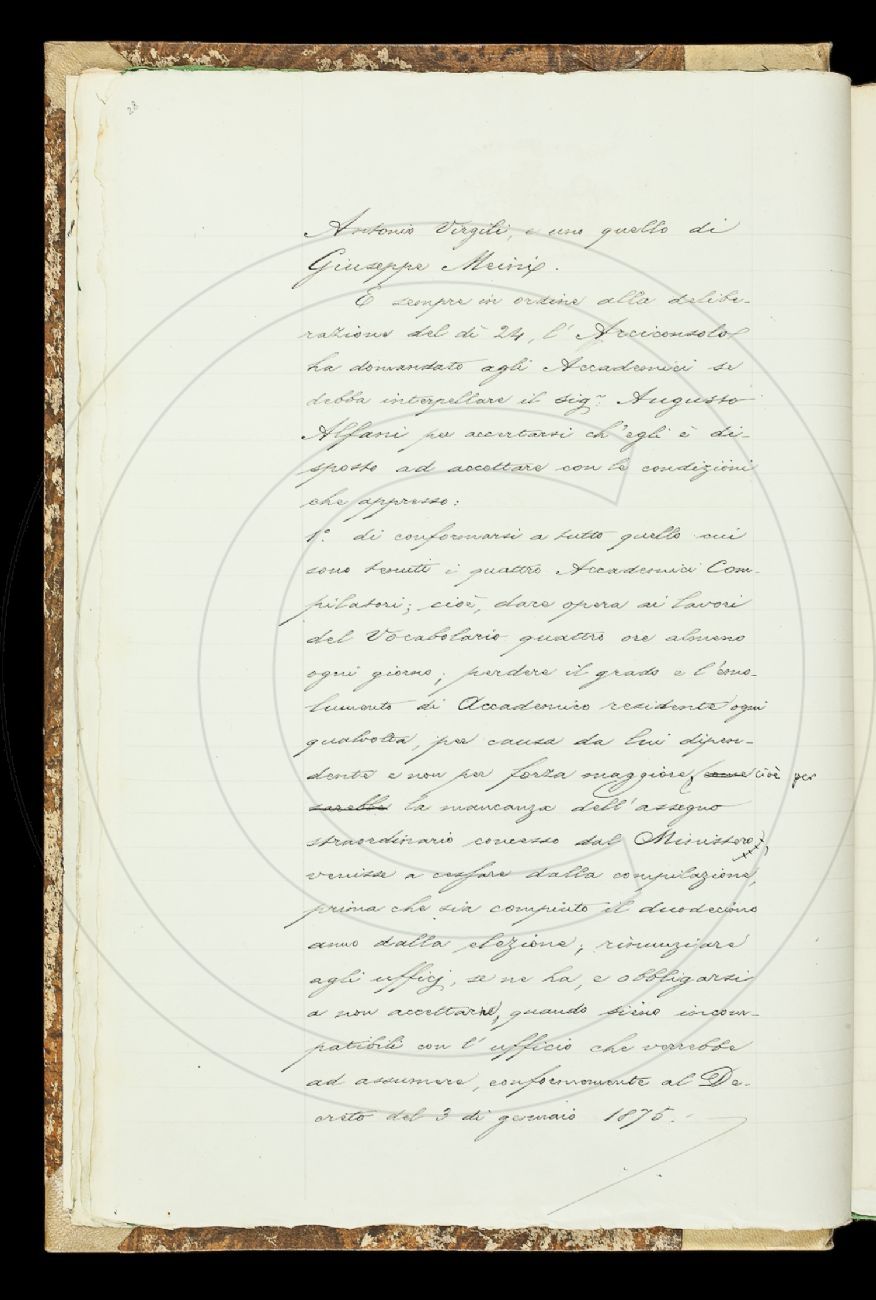 28
Antonio Virgili, e uno quello di
Giuseppe Meini.
E sempre in ordine alla delibe-
razione del dì 24, l' Arciconsolo
ha domandato agli Accademici se
debba interpellare il sigr. Augusto
Alfani per accertarsi ch'egli è di-
sposto ad accettare con le condizioni
che appresso:
1.° di conformarsi a tutto quello cui
sono tenuti i quattro Accademici Com-
pilatori; cioè, dare opera ai lavori
del Vocabolario quattro ore almeno
ogni giorno; perdere il grado e l'emo-
lumento di Accademico residente ogni
qualvolta, per causa da lui dipen-
dente e non per forza maggiore, (come cioè per
sarebbe la mancanza dell'assegno
straordinario concesso dal Ministero),
venisse a cessare dalla compilazione,
prima che sia compiuto il duodecimo
anno dalla elezione; rinunziare
agli ufficj, se ne ha, e obbligarsi
a non accettarne, quando sieno incom-
patibili con l' ufficio che verrebbe
ad assumere, conformemente al De-
creto del 3 di gennaio 1875.